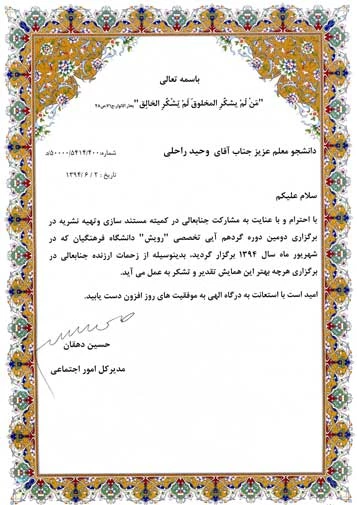 باسمه تعالی
"مَن لَمْ یشکُرِ المخلوقَ لَمْ یَشکُرِ الخالِق" بحارالانوار،ج۷۱،ص۴۵
دانشجو معلم عزیز جناب آقای وحید راحلی
شماره:۵۰۰۰۰/۵۴۱۴/۴۰۰/د
تاریخ : ۲ / ۶ /۱۳۹۴
سلام علیکم
با احترام و با عنایت به مشارکت جنابعالی در کمیته مستند سازی وتهیه نشریه در
برگزاری دومین دوره گردهم آیی تخصصی "رویش" دانشگاه فرهنگیان که در
شهریور ماه سال ۱۳۹۴ برگزار گردید، بدینوسیله از زحمات ارزنده جنابعالی در
برگزاری هرچه بهتر این همایش تقدیر و تشکر به عمل می آید.
امید است با استعانت به درگاه الهی به موفقیت های روز افزون دست یابید.
حسین دهقان
مدیرکل امور اجتماعی